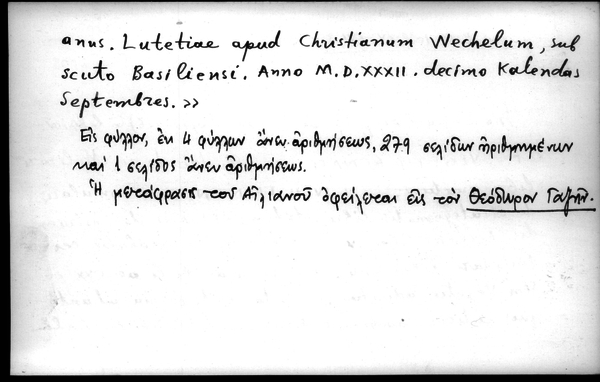 anus. Lutetiae apud Christianum Wechelum, sub
scuto Basiliensi. Anno M.D.XXXII. decimo Kalendas
Septembres. >>
Εἰς φύλλον, ἐκ 4 φύλλων ἄνευ ἀριθμήσεως, 279 σελίδων ἠριθμημένων
καὶ 1 σελίδος ἄνευ ἀριθμήσεως.
Ἡ μετάφρασις τοῦ Αἰλιανοῦ ὀφείλεται εἰς τὸν Θεόδωρον Γαζῆν.